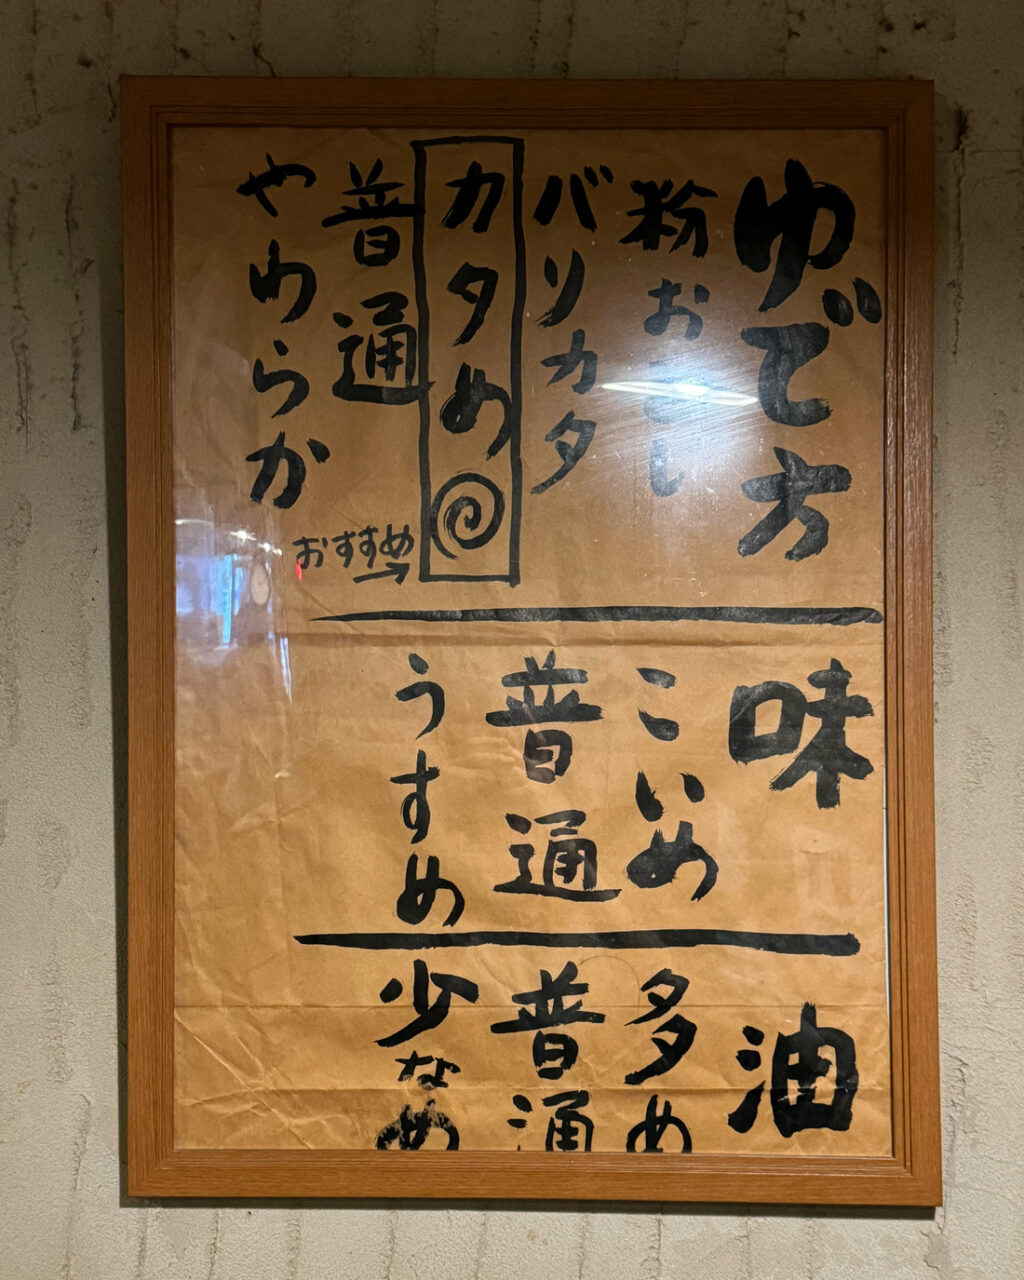 ゆで方
粉おとし
バリカタ
カタめ
普通
やわらか
おすすめ→
味
こいめ
普通
うすめ
油
多め
普通
少なめ